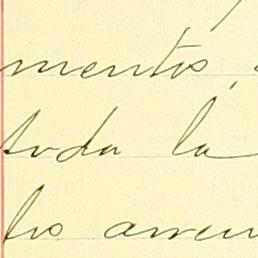 mentos,
toda la
los arren